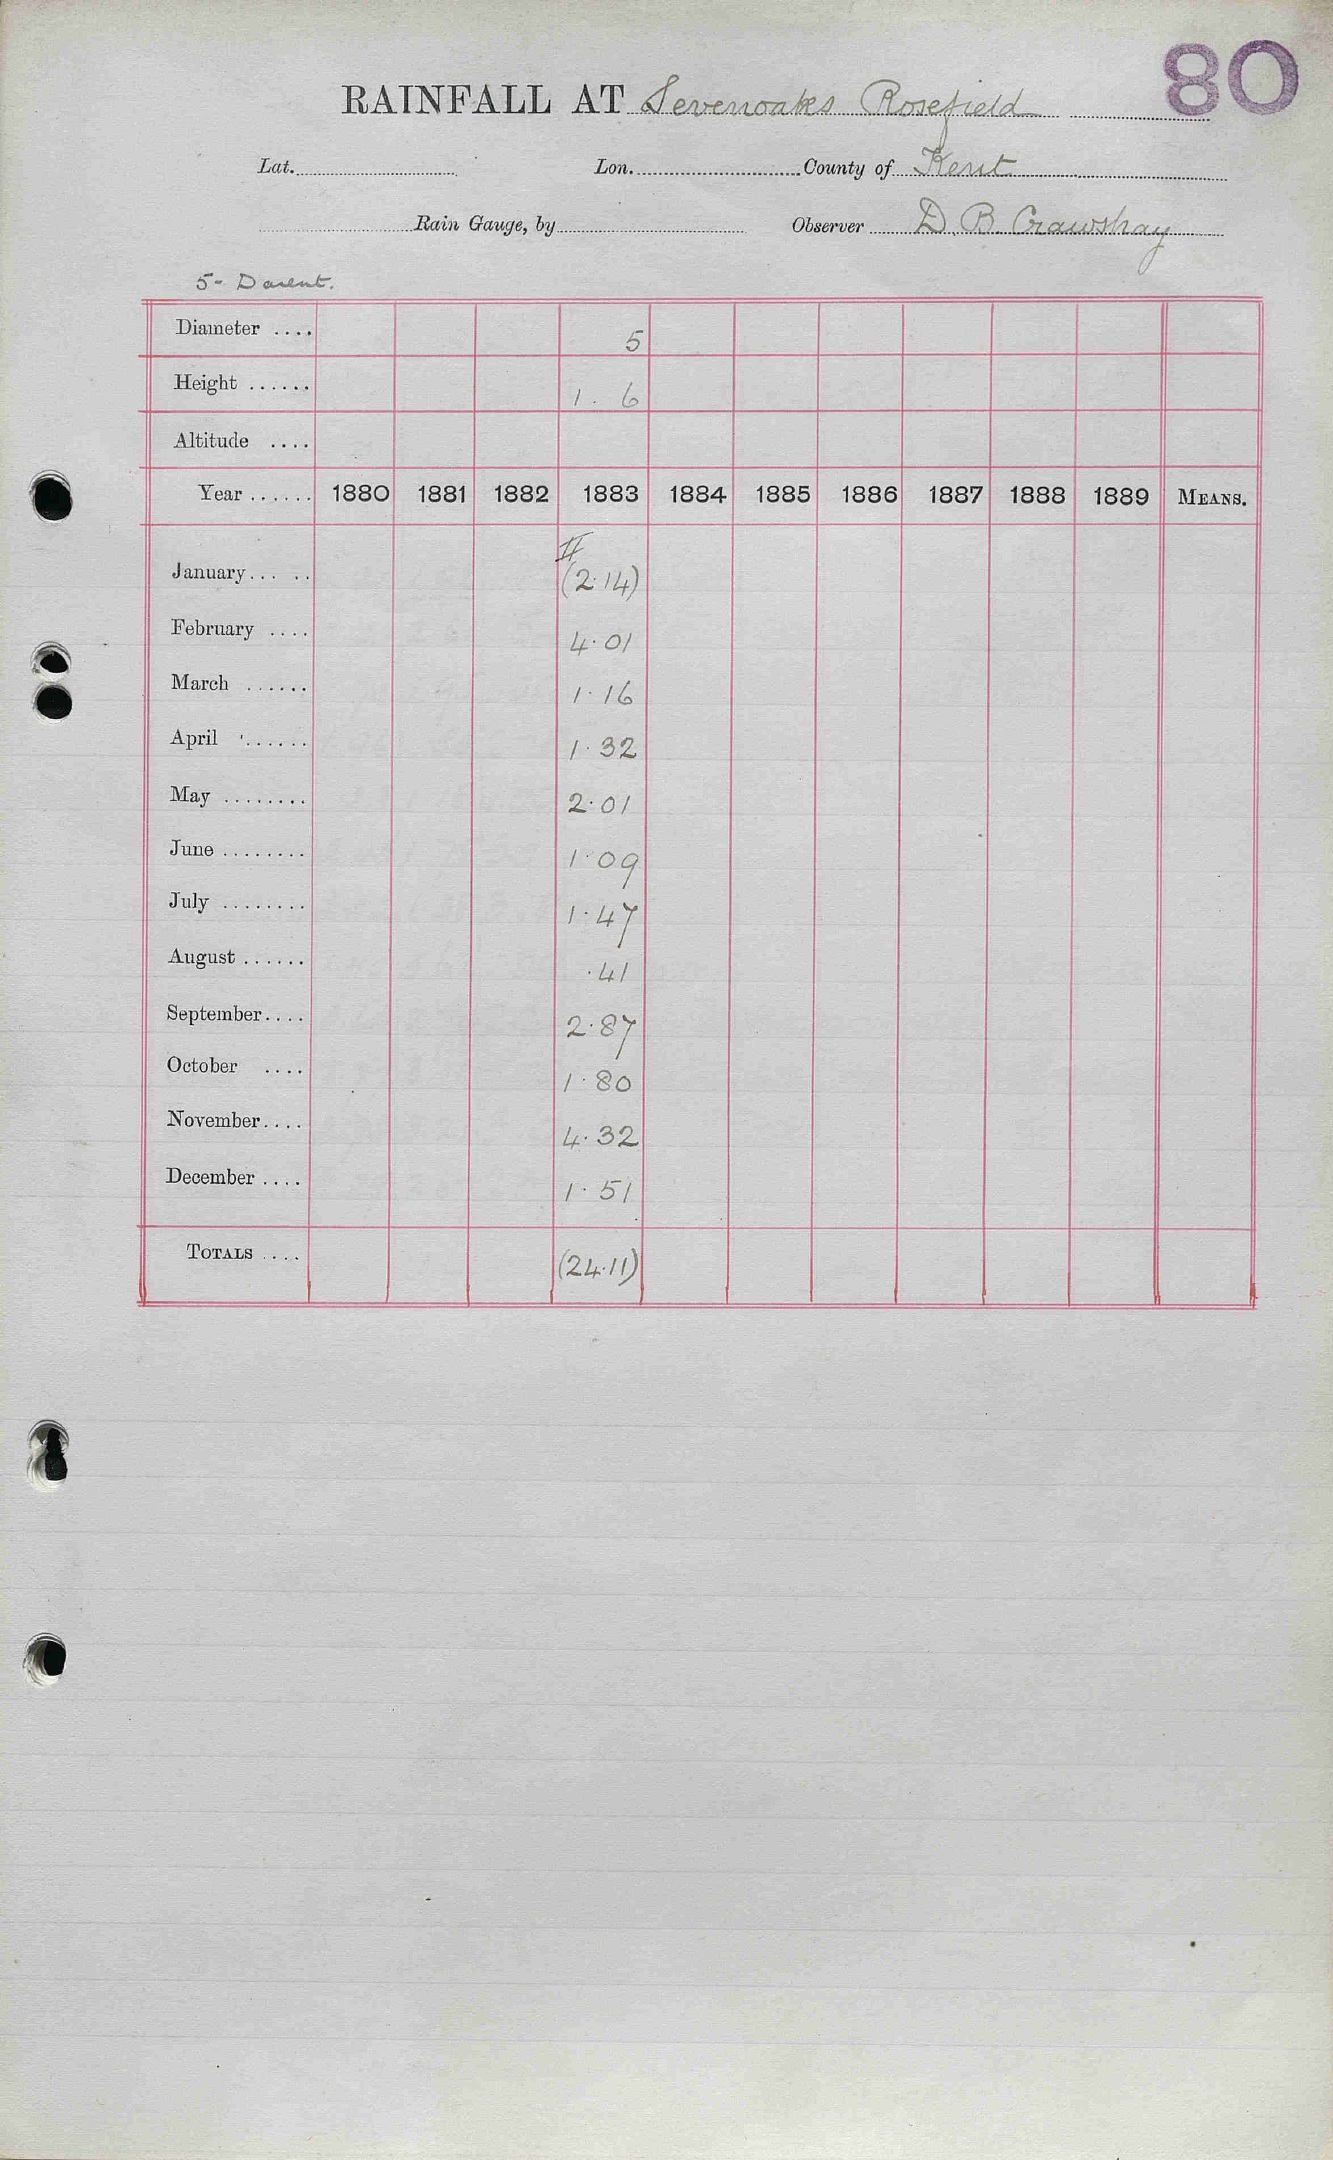 80
RAINFALL AT Sevenoaks Rosefield
Lat. Lon. County of Kent
Rain Gauge, by Observer D. B. Crawshay
5 - Darent.
Diameter .... 5
Height ...... 1. 6
Altitude ....
Year ...... 1880 1881 1882 1883 1884 1885 1886 1887 1888 1889 MEANS.
II
January... .. (2.14)
February .... 4.01
March ...... 1.16
April ...... 1.32
May ........ 2.01
June ........ 1.09
July ........ 1.47
August ...... .41
September.... 2.87
October .... 1.80
November.... 4.32
December .... 1.51
TOTALS .... (24.11)